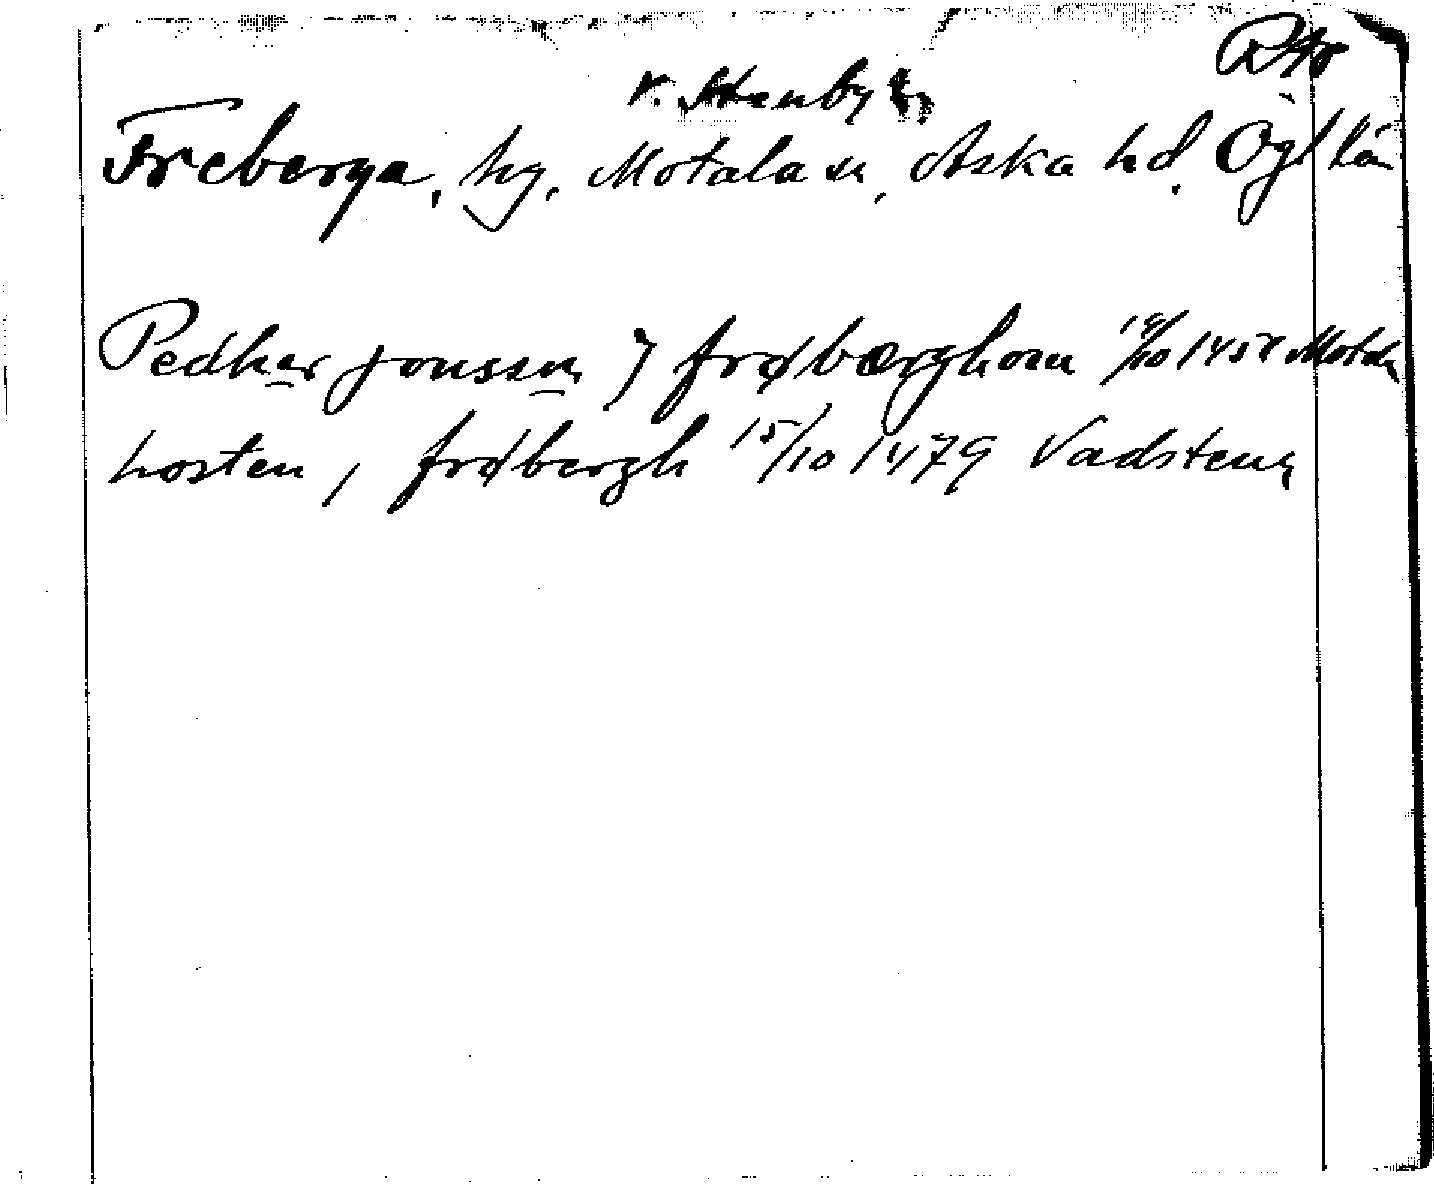 RAp
v. Stenby
Freberga, by, Motala sn, Aska hd, Ögl län
Pedher jonsson j frøbærghom 18/10 1458 Motala
hosten, frøbergh 15/10 1479 Vadstena